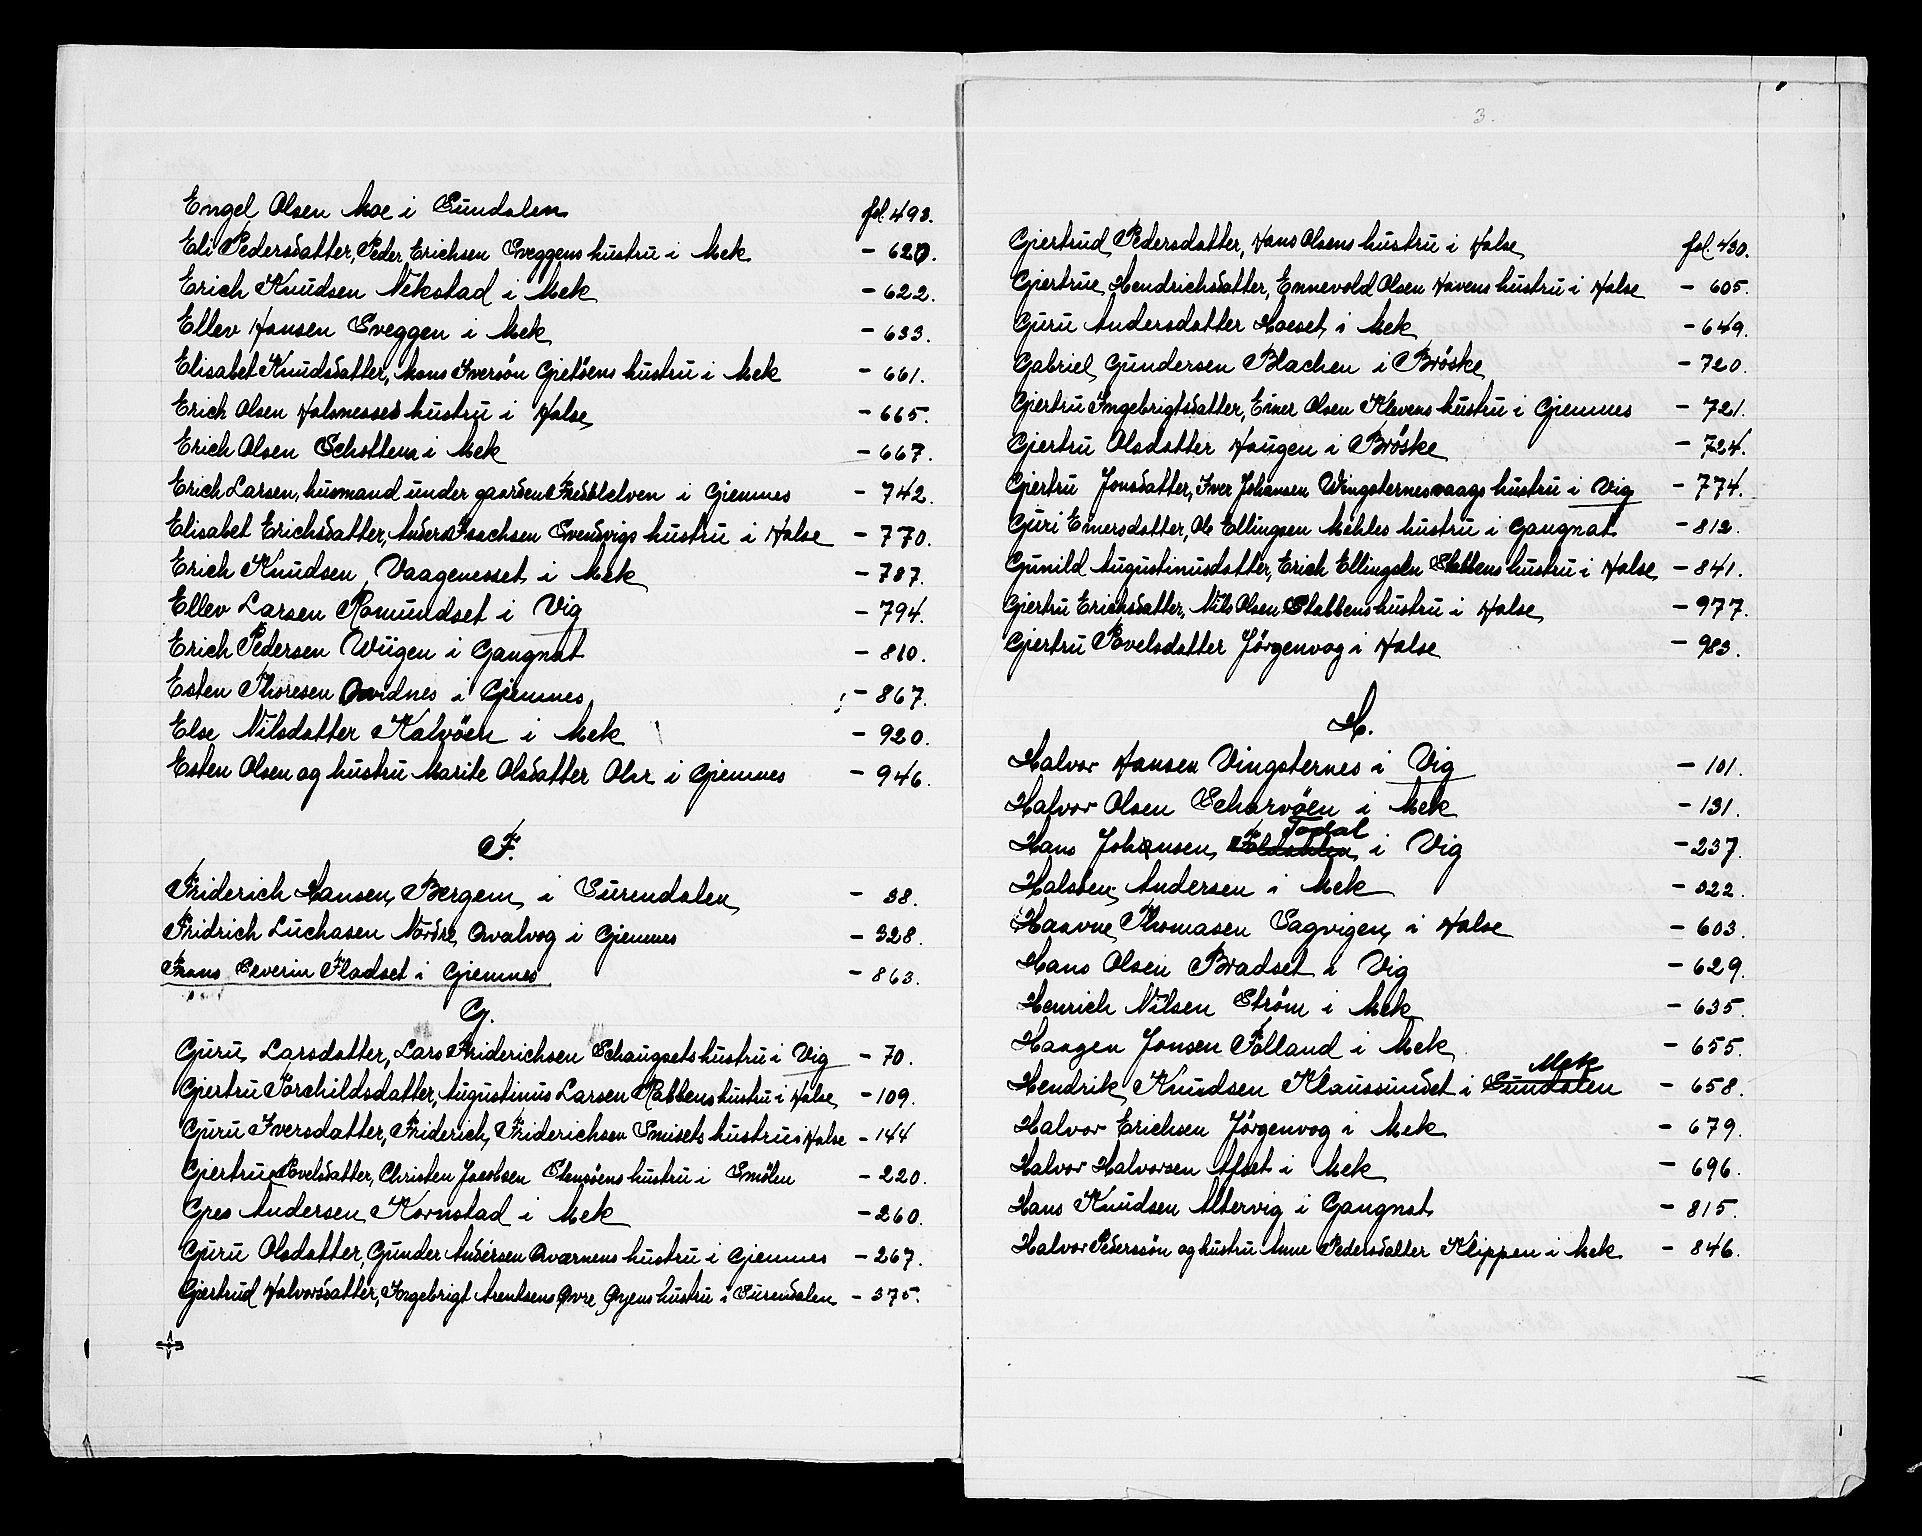 Engel Olsen Moe i Sundalen fol. 493.
Eli Pedersdatter, Peder Erichsen Sveggens hustru i Mek - 620.
Erich Knudsen Nekstad i Mek - 622.
Ellev Hansen Sveggen i Mek - 633.
Elisabet Knudsdatter, Mons Iversøn Gjetøens hustru i Mek - 661.
Erich Olsen Halsnesses hustru i Halse - 665.
Erich Olsen Schottem i Mek - 667.
Erich Larsen, husmand under gaarden Fredblelven i Gjemnes - 742.
Elisabet Erichsdatter, Anders Isachsen Svendvigs hustru i Halse - 770.
Erich Knudsen Vaagenesset i Mek - 787.
Ellev Larsen Romundset i Vig - 794.
Erich Pedersen Wiigen i Gangnat - 810.
Esten Thoresen Qvidnes i Gjemnes - 867.
Else Nilsdatter Kalvöen i Mek - 920.
Esten Olsen og hustru Marite Olsdatter Olsr i Gjemnes - 946.
F.
Friderich Hansen Bergem i Surendalen - 38.
Fridrich Luchasen Nordre Qvalvog i Gjemnes - 328.
Frans Severin Fladset i Gjemnes - 863.
G.
Guru Larsdatter, Lars Friderichsen Schaugsets hustru i Vig - 70.
Gjertru Torchildsdatter, Augustinus Larsen Rabbens hustru i Halse - 109.
Guru Iversdatter, Friderich Friderichsen Smisets hustru i Halse - 144
Gjertrue Povelsdatter, Christen Jacobsen Stensöens hustru i Smölen - 220.
Gres Andersen Kornstad i Mek - 260.
Guru Olsdatter, Gunder Andersen Qværnens hustru i Gjemnes - 267.
Gjertrud Halvorsdatter, Ingebrigt Arentsens Øvre Øyens hustru i Surendalen - 375.
3.
Gjertrud Pedersdatter, Hans Olsens hustru i Halse fol. 430.
Gjertrue Hendrichsdatter, Ennevold Olsen Havens hustru i Halse - 605.
Guru Andersdatter Hoeset i Mek - 649.
Gabriel Gundersen Blachen i Bröske - 720.
Gjertru Ingebrigtsdatter, Einer Olsen Klevens hustru i Gjemnes - 721.
Gjertru Olsdatter Haugen i Bröske - 724.
Gjertru Jonsdatter, Iver Johansen Wingsternesvaags hustru i Vig - 774.
Guri Einersdatter, Ole Ellingsen Mehles hustru i Gangnat - 812.
Gunild Augustinusdatter, Erich Ellingsen Stabbens hustru i Halse - 841.
Gjertru Erichsdatter, Nils Olsen Stabbens hustru i Halse - 977.
Gjertru Povelsdatter Jørgenvog i Halse - 983.
H.
Halvor Hansen Vingsternes i Vig - 101.
Halvor Olsen Scharvöen i Mek - 131.
Todal
Hans Johansen i Vig - 237.
Halsten Andersen i Mek - 322.
Haavue Thomasen Sagvigen i Halse - 603.
Hans Olsen Bradset i Vig - 629.
Henrich Nilsen Ström i Mek - 635.
Haagen Jonsen Folland i Mek - 655.
Mek
Hendrik Knudsen Klaussundet i Sundalen - 658.
Halvor Erichsen Jørgenvog i Mek - 679.
Halvor Halvorsen i Mek - 696.
Hans Knudsen Altervig i Gangnat - 815.
Halvor Pedersön og hustru Anne Pedersdatter Klippen i Mek - 846.